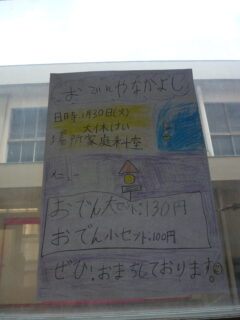 おでんやなかよし
日時:1月30日(火)
大休けい
場所家庭科室
メニュー
おでん大セット:130円
おでん小セット:100円
ぜひ!おまちしております。